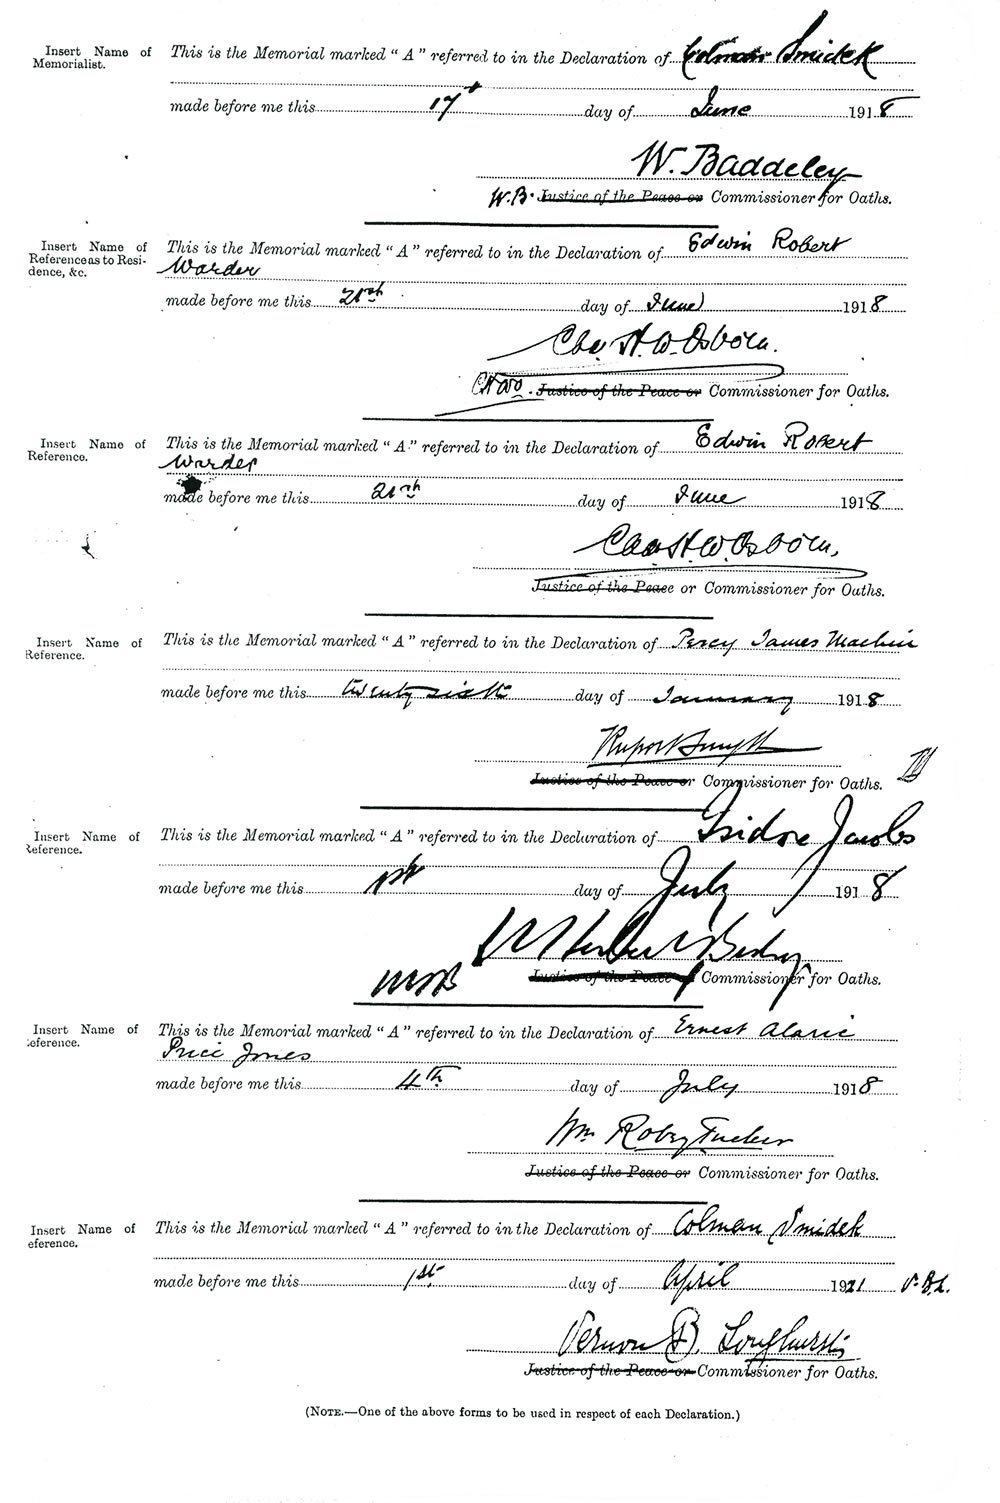 Insert Name of
Memorialist.
This is the Memorial marked “A” referred to in the Declaration of Colman Smidek
made before me this 17th day of June 1918
W. Baddeley
W.B. Justice of the Peace or Commissioner for Oaths.
Insert Name of
Reference as to Resi-
dence, &c.
This is the Memorial marked “A” referred to in the Declaration of Edwin Robert
Warder
made before me this 21st day of June 1918
Chas H. W. Osborn.
CHWO. Justice of the Peace or Commissioner for Oaths.
Insert Name of
Reference.
This is the Memorial marked “A” referred to in the Declaration of Edwin Robert
Warder
made before me this 21st day of June 1918
Chas H. W. Osborn.
Justice of the Peace or Commissioner for Oaths.
Insert Name of
Reference.
This is the Memorial marked “A” referred to in the Declaration of Percy James Machin
made before me this twenty sixth day of January 1918
Rupert Smyth
Justice of the Peace or Commissioner for Oaths.
Insert Name of
Reference.
This is the Memorial marked “A” referred to in the Declaration of Isidore Jacobs
made before me this 1st day of July 1918
Justice of the Peace or Commissioner for Oaths.
Insert Name of
eference.
This is the Memorial marked “A” referred to in the Declaration of Ernest Alaric
Price Jones
made before me this 4th day of July 1918
Wm Roby Tucker
Justice of the Peace or Commissioner for Oaths.
Insert Name of
eference.
This is the Memorial marked “A” referred to in the Declaration of Colman Smidek
made before me this 1st day of April 1921 V.B.L.
Vernon B. Longhurst
Justice of the Peace or Commissioner for Oaths.
(NOTE.—One of the above forms to be used in respect of each Declaration.)